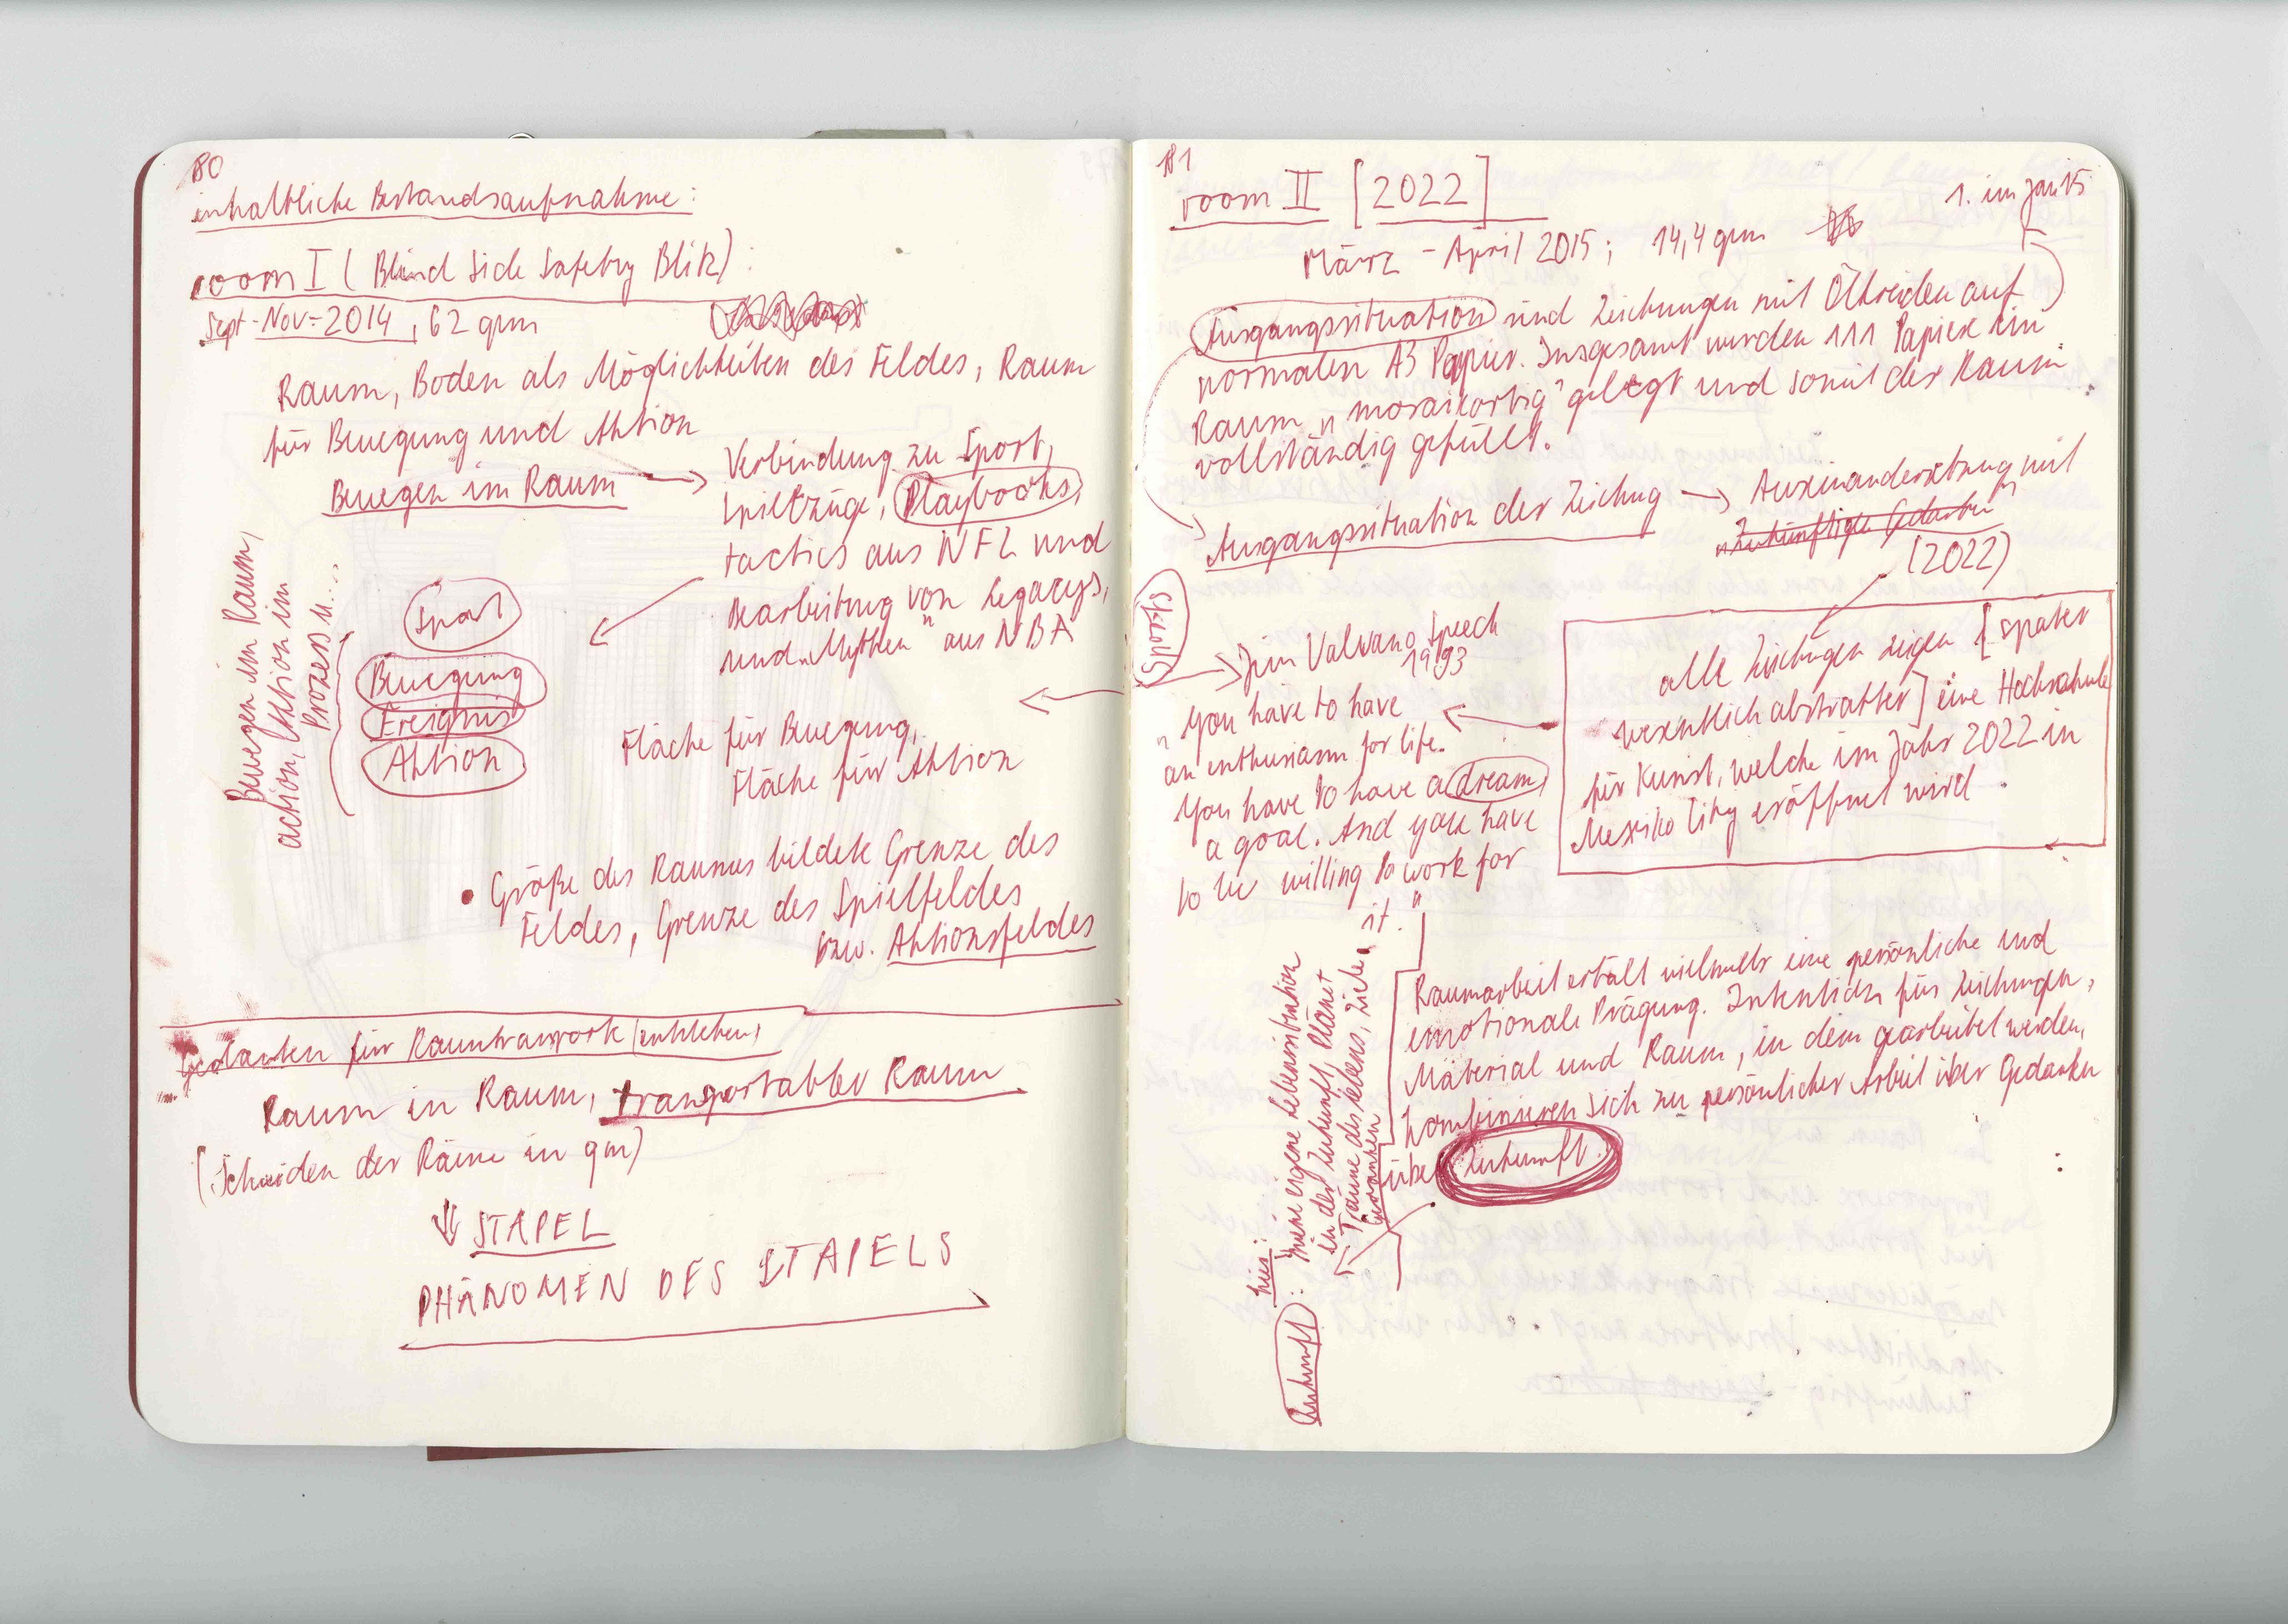 80
inhaltliche Bestandsaufnahme:
room I (Blind Side Safety Blitz):
Sept-Nov-2014, 62 qm
Raum, Boden als Möglichkeiten des Feldes, Raum
für Bewegung und Aktion
Bewegen im Raum →
Verbindung zu Sport,
Spielzüge, Playbooks,
tactics aus NFL und
Bearbeitung von Legacys,
und „Mythen" aus NBA
Bewegen im Raum,
action, Aktion im
Prozess u....
Sport
Bewegung
Ereignis
Aktion
Fläche für Bewegung,
Fläche für Aktion
• Größe des Raumes bildete Grenze des
Feldes, Grenze des Spielfeldes
bzw. Aktionsfeldes
Gedanken für Raumtransport
Raum in Raum, transportabler Raum
(Schneiden der Räume in qm)
⇓ STAPEL
PHÄNOMEN DES STAPELS
181
room II [2022]
1. im Jan 15
März - April 2015; 14,4 qm
Ausgangssituation sind Zeichungen mit Ölkreiden auf
normalen A3 Papier. Insgesamt wurden 111 Papiere im
Raum „mosaikartig" gelegt und somit der Raum
vollständig gefüllt.
Ausgangssituation der Zeichung → Auseinandersetzung mit
„Zukünftigen Gedanken"
(2022)
Sports
Jim Valvano Speech
1993
„You have to have
an enthusiasm for life.
You have to have a dream,
a goal. And you have
to be willing to work for
it."
alle Zeichungen zeigen [später
wesentlich abstrakter] eine Hochschule
für Kunst, welche im Jahr 2022 in
Mexiko City eröffnet wird.
Raumarbeit erhält vielmehr eine persönliche und
emotionale Prägung. Intention für Zeichungen,
Material und Raum, in dem gearbeitet werden,
kombinieren sich zu persönlicher Arbeit über Gedanken
über Zukunft.
Zukunft: hier: meine eigene Lebenssituation
in der Zukunft, Pläne +
Träume des Lebens, Ziele,
Gedanken